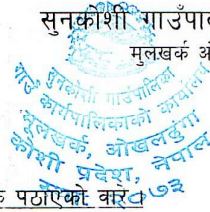 सुनकोशी गाउँपा
मुलखर्क
सुनकोशी गाउँपालिका
गाउँ कार्यपालिकाको कार्यालय
मूलखर्क, ओखलढुंगा
कोशी प्रदेश, नेपाल
२०७३
पठाएको बारे।